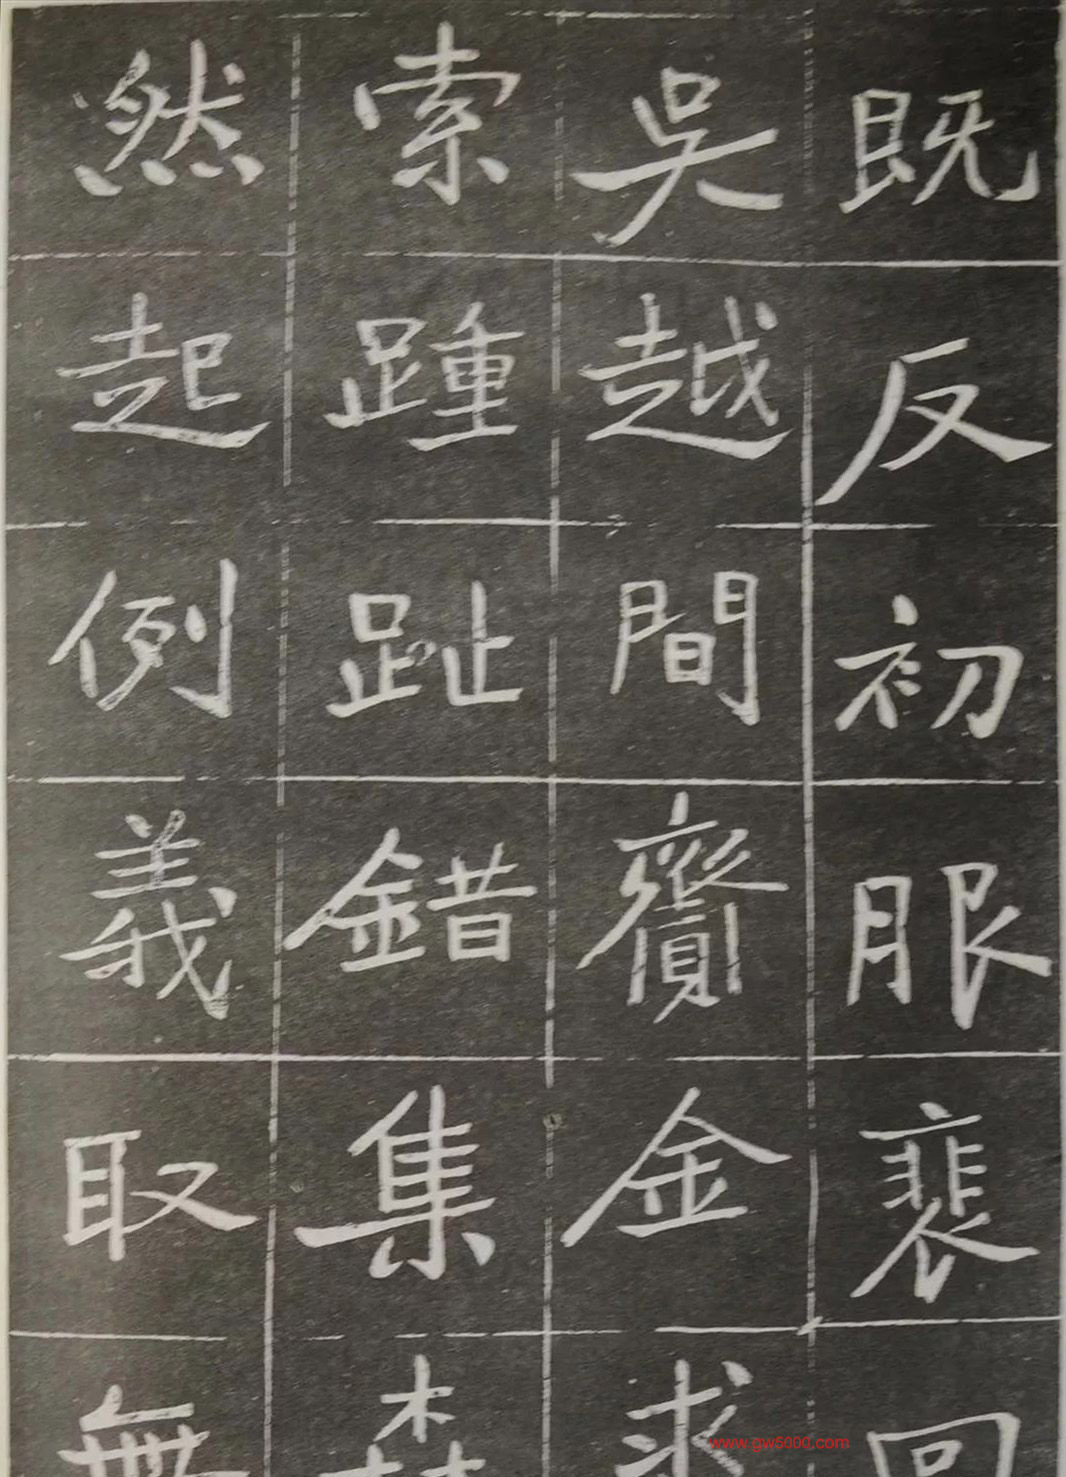 既反初服裴回
吳越間齎金求
索踵趾錯集森
然起例義取無
www.gw5000.com